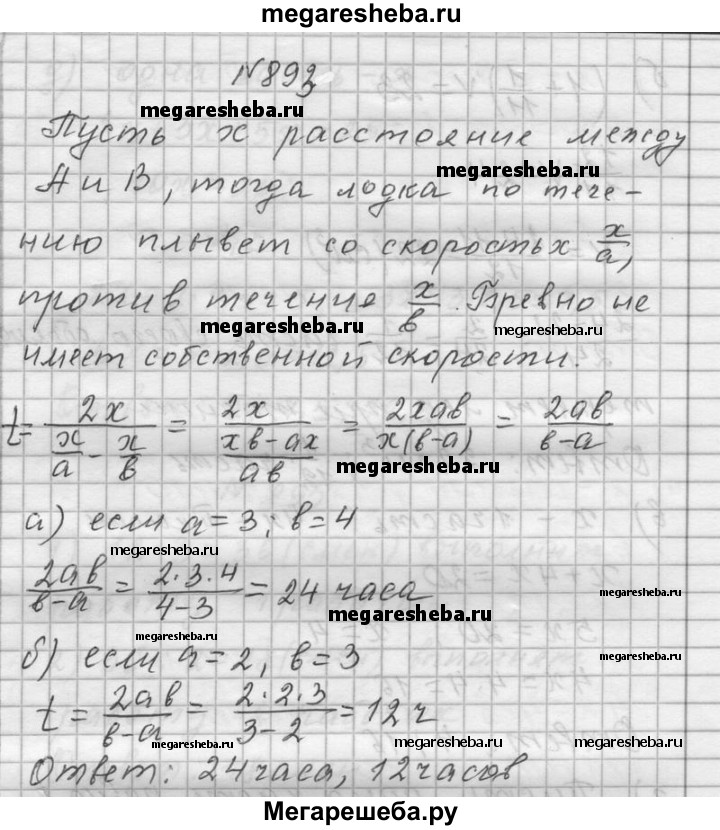 megaresheba.ru
№893
megaresheba.ru
Пусть x расстояние между
megaresheba.ru
А и В, тогда лодка по тече-
нию плывет со скоростью x/a,
против течения x/в. Бревно не
megaresheba.ru megaresheba.ru
имеет собственной скорости.
t= 2x/(x/a - x/в) = 2x/((xв-ax)/aв) = 2xaв/x(в-a) = 2aв/(в-a)
megaresheba.ru
а) если a=3; в=4
megaresheba.ru
2aв/(в-a) = 2·3·4/(4-3) = 24 часа
megaresheba.ru
megaresheba.ru megaresheba.ru
б) если a=2, в=3
t = 2aв/(в-a) = 2·2·3/(3-2) = 12 ч
megaresheba.ru megaresheba.ru megaresheba.ru
Ответ: 24 часа, 12 часов
Мегарешеба.ру